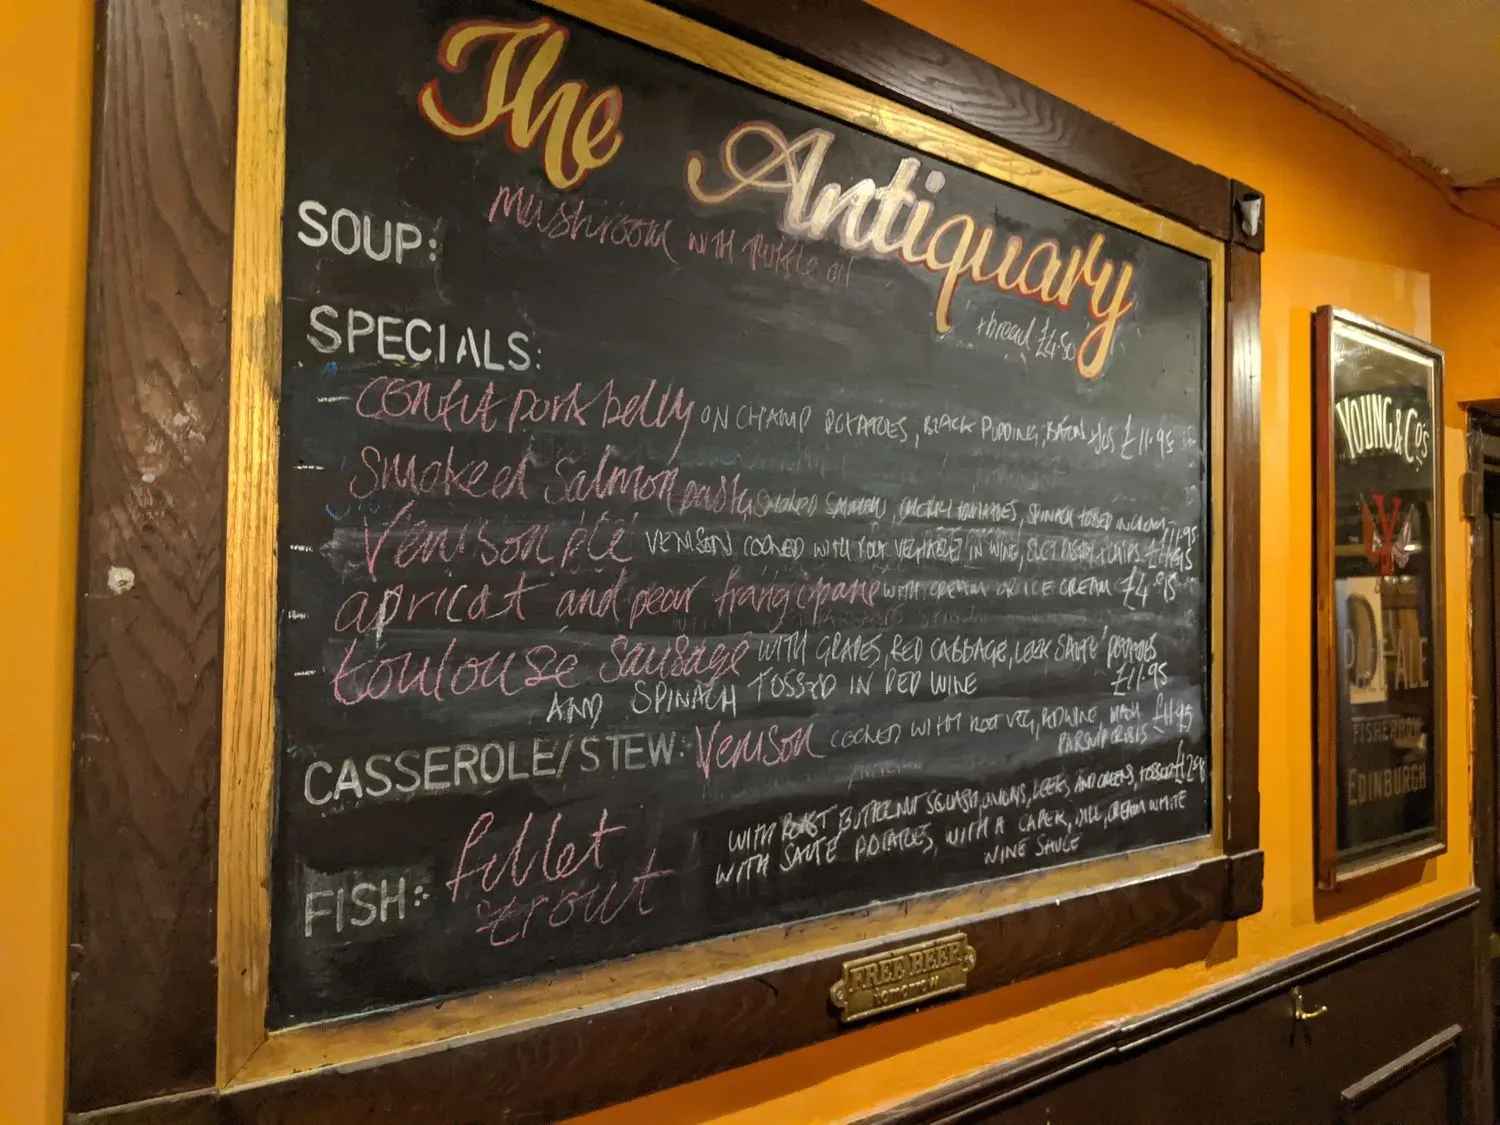 The Antiquary
SOUP: Mushroom WITH truffle oil
+bread £4.50
SPECIALS:
- confit pork belly ON CHAMP POTATOES, BLACK PUDDING, BACON JUS £11.95
- Smoked Salmon pasta, SMOKED SALMON, CHERRY TOMATOES, SPINACH TOSSED IN CREAM £11.95
- Venison pie VENISON COOKED WITH ROOT VEGETABLES IN WINE, SUET PASTRY & CHIPS £11.95
- apricot and pear frangipane WITH CREAM OR ICE CREAM £4.95
- toulouse sausage WITH GRAPES, RED CABBAGE, LEEK SAUTE POTATOES
AND SPINACH TOSSED IN RED WINE £11.95
CASSEROLE/STEW: Venison COOKED WITH ROOT VEG, RED WINE, MASH £11.95
PARSNIP CRISPS
FISH: fillet trout
WITH ROAST BUTTERNUT SQUASH, ONIONS, LEEKS, AND GREENS, TOSSED
WITH SAUTE POTATOES, WITH A CAPER, DILL, CREAM WHITE
WINE SAUCE
FREE BEER
TOMORROW
YOUNG & Co's
Y
ALE
EDINBURGH